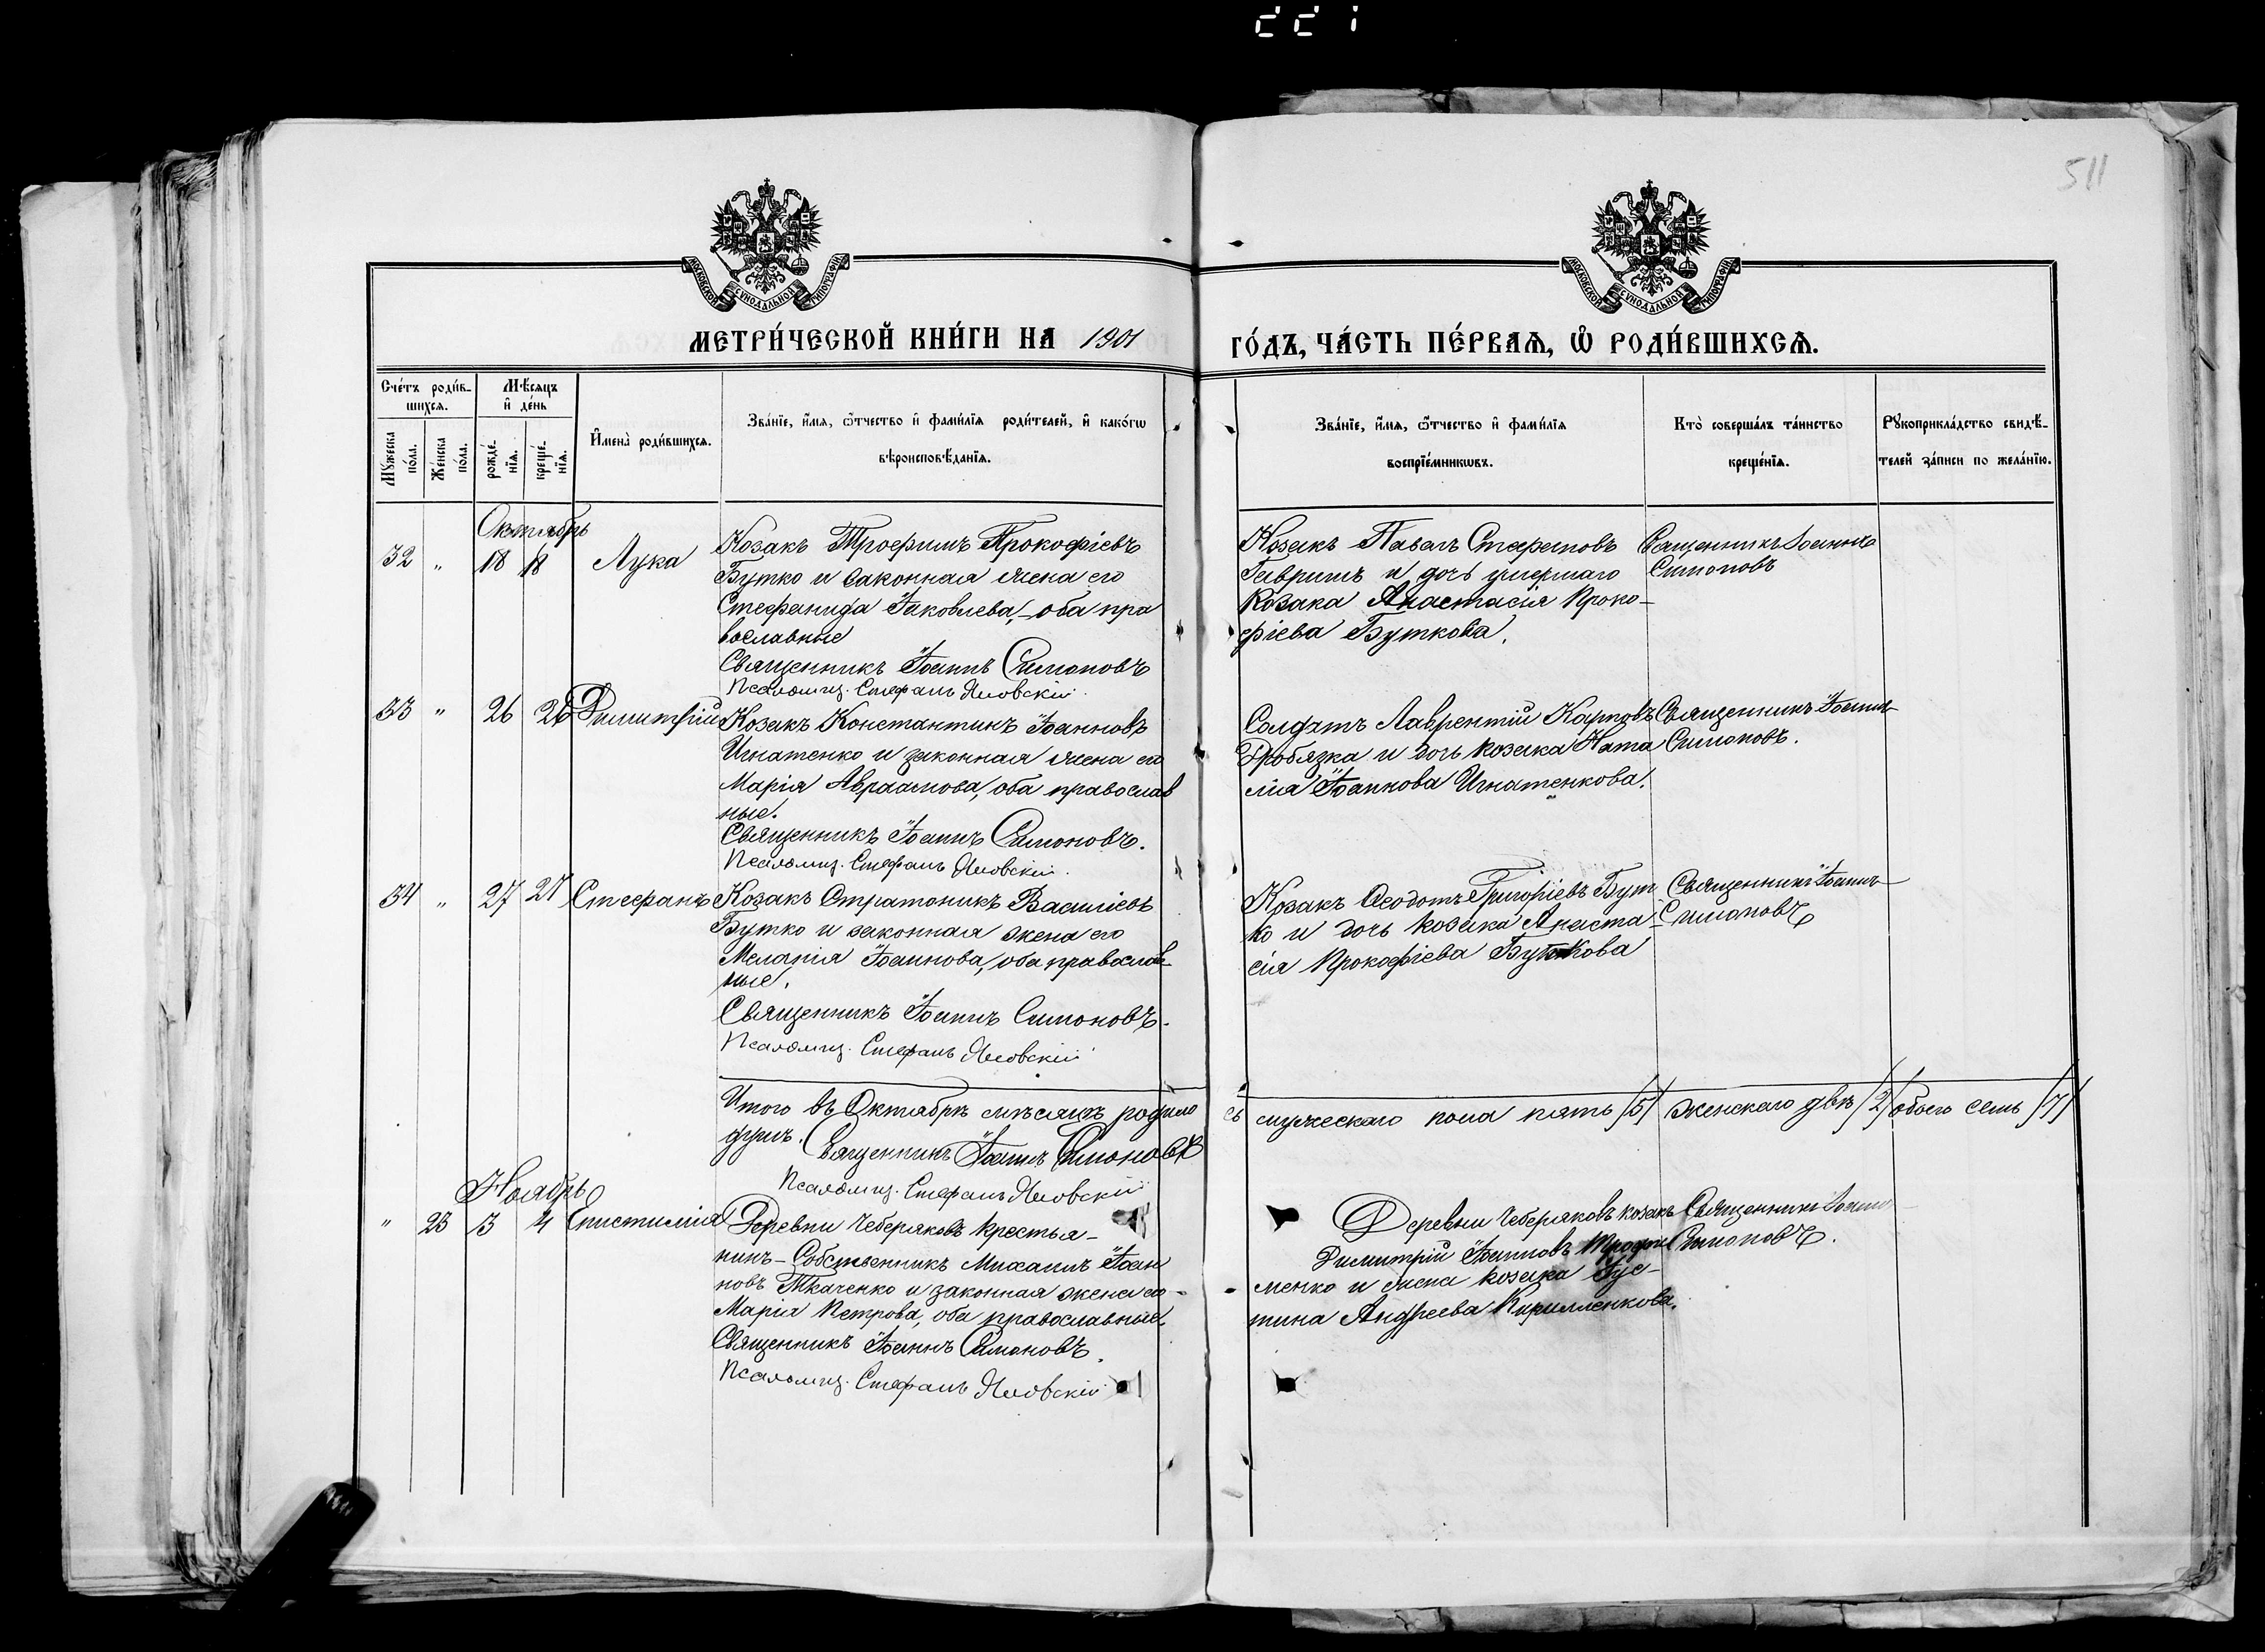 511
МОСКОВСКОЙ СѴНОДАЛЬНОЙ ТИПОГРАФІИ
МОСКОВСКОЙ СѴНОДАЛЬНОЙ ТИПОГРАФІИ
МЕТРИ́ЧЕСКОЙ КНИ́ГИ НА 1901
ГО́ДЪ, ЧА́СТЬ ПЕ́РВАѦ, Ѡ҆ РОДИ́ВШИХСѦ.
Сче́тъ роди́в-
шихсѧ.
Мꙋ́жеска по́ла.
Же́нска по́ла.
Мѣ́сѧцъ
и҆ де́нь
рожде́-
нїѧ.
креще́-
нїѧ.
И҆мена̀ роди́вшихсѧ.
Зва́нїе, и҆́мѧ, ѻ҆́тчество и҆ фами́лїѧ роди́телей, и҆ како́гѡ
вѣроисповѣ́данїѧ.
Зва́нїе, и҆́мѧ, ѻ҆́тчество и҆ фами́лїѧ
воспрїе́мникѡвъ.
Кто̀ соверша́лъ та́инство
креще́нїѧ.
Рꙋкоприкла́дство свидѣ́-
телей за́писи по жела́нїю.
Октябрь
32 " 18 18 Лука
Козакъ Трофимъ Прокофіевъ
Бутко и законная жена его
Стефанида Іаковлева, – оба пра
вославные
Священникъ Іоаннъ Симоновъ
Псаломщ. Стефанъ Яновскій
Козакъ Павелъ Стефановъ
Гавришъ и дочь умершаго
козака Анастасія Проко–
фіева Буткова.
Священникъ Іоаннъ
Симоновъ
33 " 26 26 Димитрій
Козакъ Константинъ Іоанновъ
Игнатенко и законная жена его
Марія Авраамова, оба православ
ные.
Священникъ Іоаннъ Симоновъ.
Псаломщ. Стефанъ Яновскій.
Солдатъ Лаврентій Карповъ
Дробязка и дочь козака Ната
лія Іоаннова Игнатенкова.
Священникъ Іоаннъ
Симоновъ.
34 " 27 27 Стефанъ
Козакъ Стратоникъ Василіевъ
Бутко и законная жена его
Меланія Іоаннова, оба православ
ные.
Священникъ Іоаннъ Симоновъ.
Псаломщ. Стефанъ Яновскій
Козакъ Ѳеодотъ Григоріевъ Бут
ко и дочь козака Анаста–
сія Прокофіева Буткова
Священникъ Іоаннъ
Симоновъ
Итого въ Октябрѣ мѣсяцѣ родило
сь мужескаго пола пять /5/ женскаго двѣ /2/ обоего семь /7/
душъ. Священникъ Іоаннъ Симоновъ
Псаломщ. Стефанъ Яновскій
Ноябрь
" 23 3 4 Епистимія
Деревни Чеберяковъ крестья–
нинъ–Собственникъ Михаилъ Іоан
новъ Ткаченко и законная жена его
Марія Петрова, оба православные.
Священникъ Іоаннъ Симоновъ.
Псаломщ. Стефанъ Яновскій
Деревни Чеберяковъ козакъ
Димитрій Іоанновъ Трофи
менко и жена козака Іус–
тина Андреева Кирилленкова.
Священникъ Іоаннъ
Симоновъ.